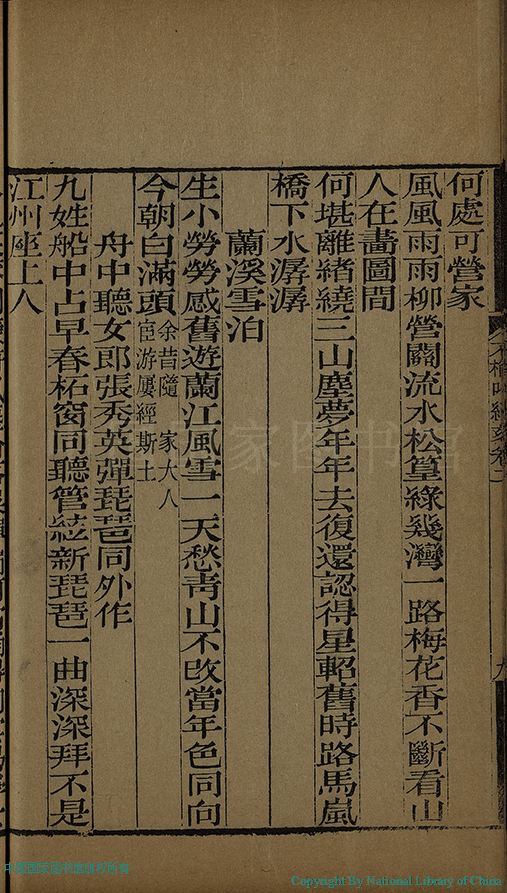 何處可營家
風風雨雨柳營關流水松篁綠幾灣一路梅花香不斷看山
人在畵圖間
何堪離緒繞三山塵夢年年去復還認得星軺舊時路馬嵐
橋下水潺潺
蘭溪雪泊
生小勞勞感舊遊蘭江風雪一天愁靑山不改當年色同向
今朝白滿頭余昔隨 家大人宦游屢經斯土
舟中聽女郎張秀英彈琵琶同外作
九姓船中占早春柘窗同聽管絃新琵琶一曲深深拜不是
江州座上人
九
中国国家图书馆
Copyright By National Library of China